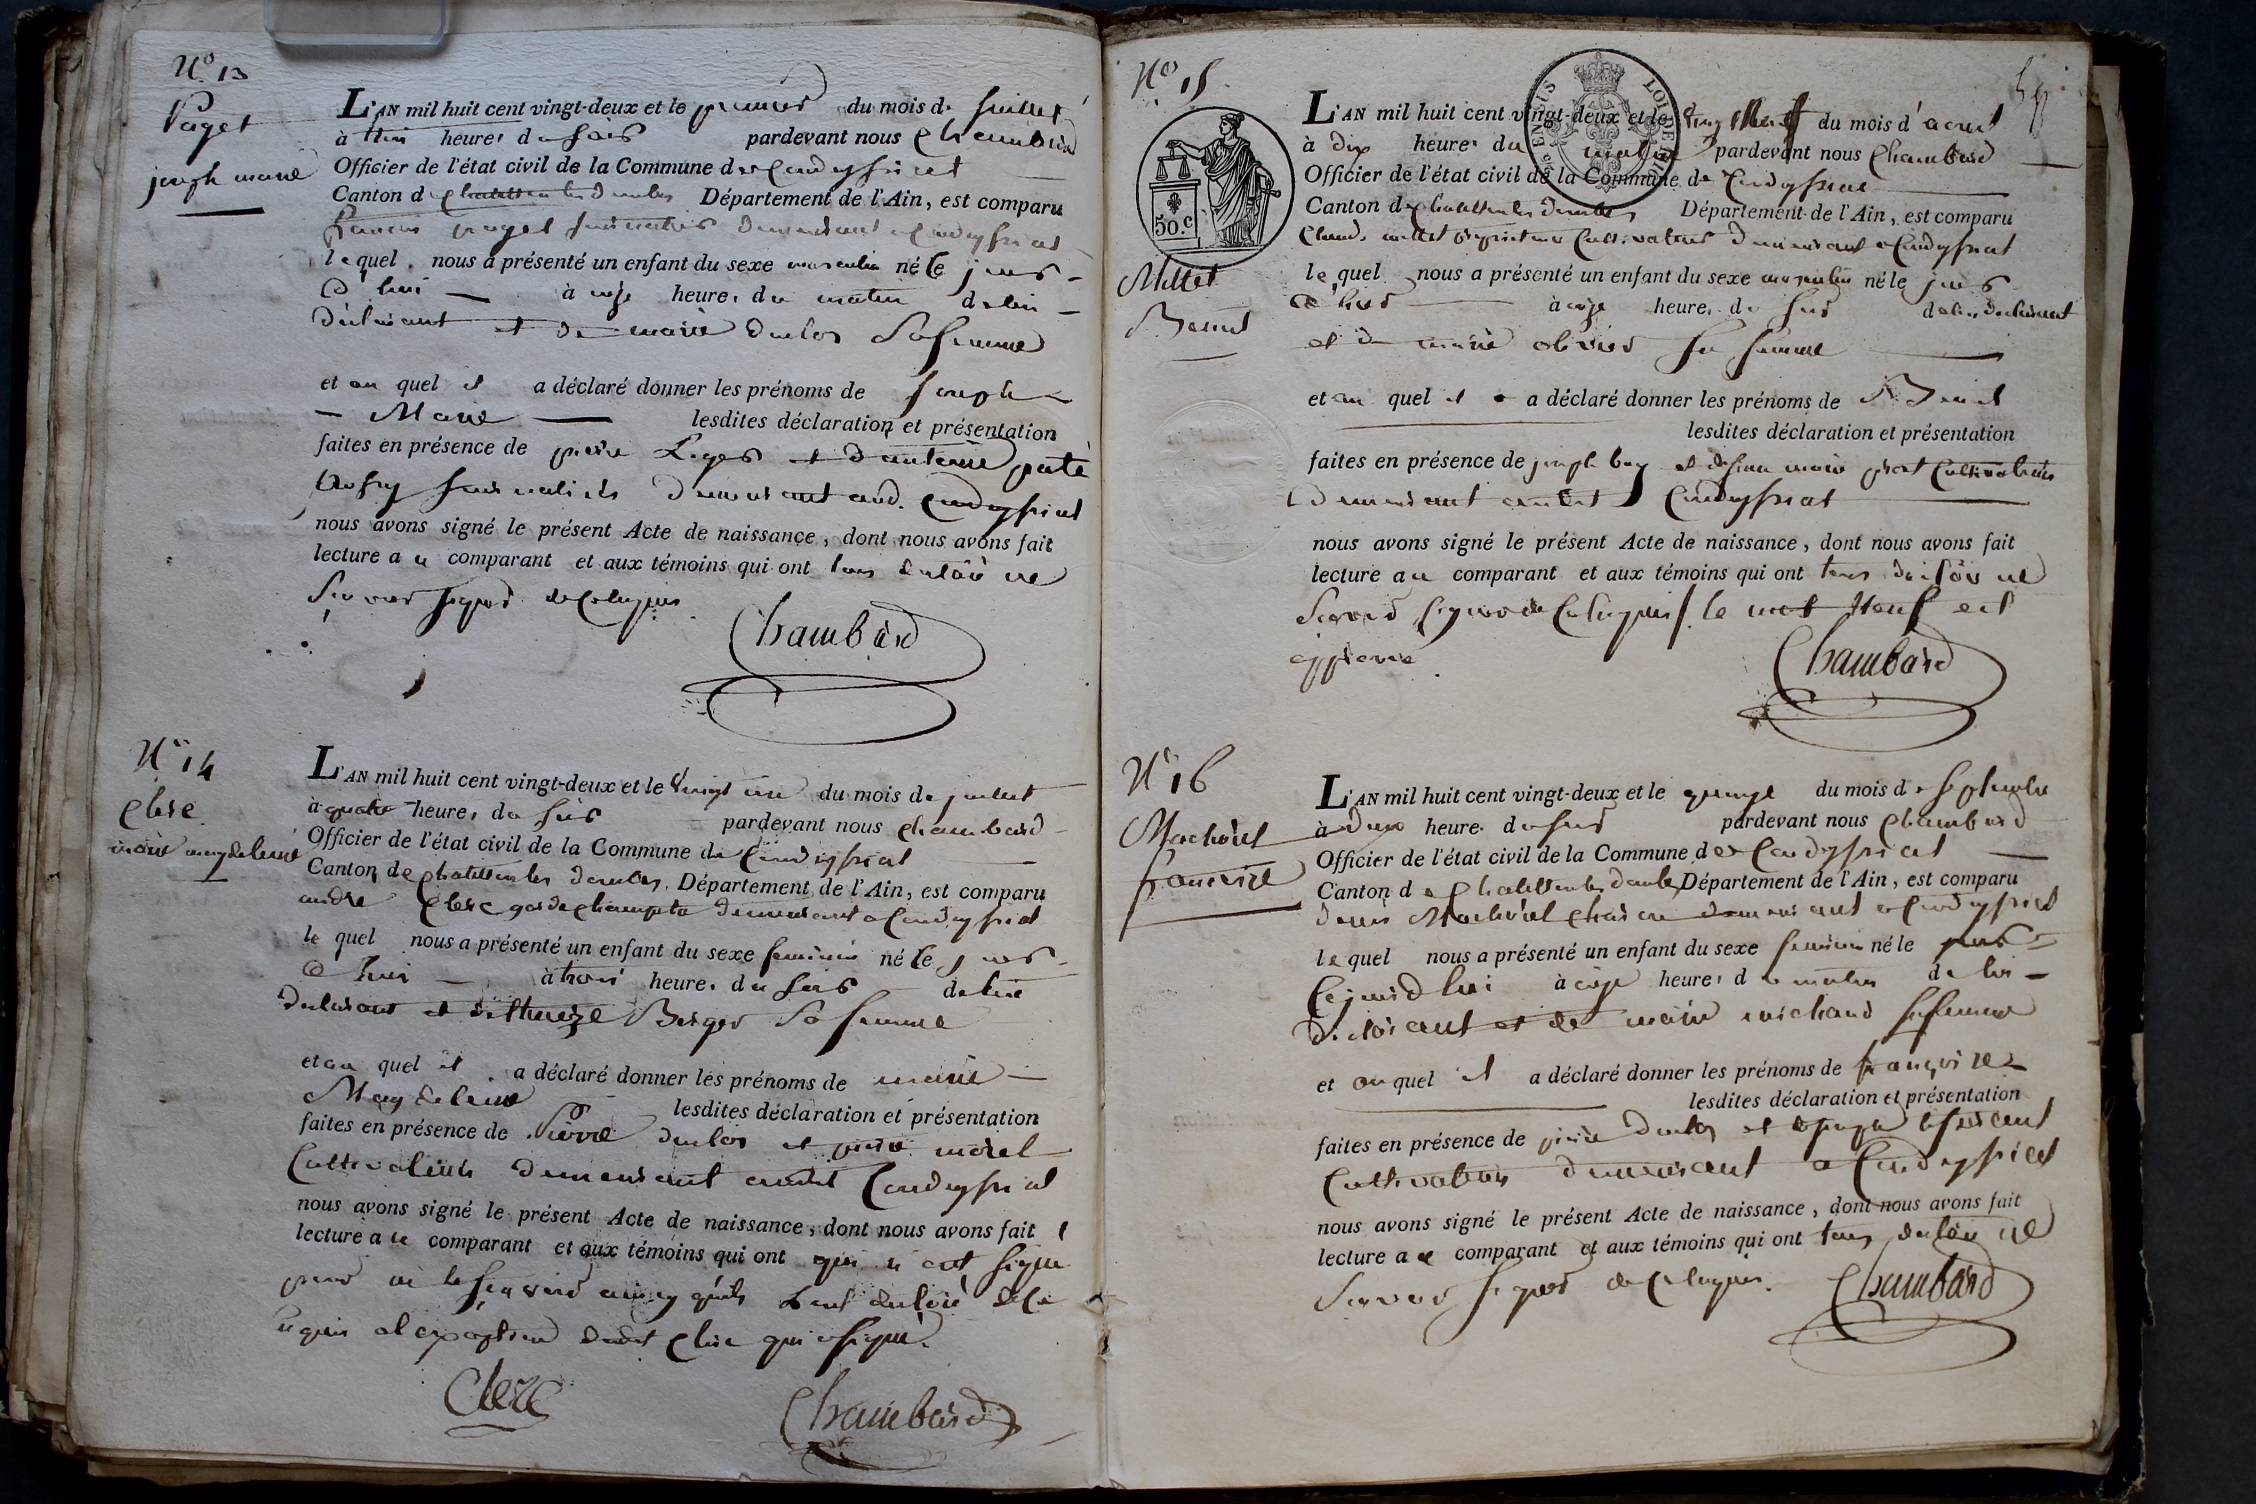 N.o 13
Paget
joseph marie
L'AN mil huit cent vingt-deux et le premier du mois de juillet
à heures du soir pardevant nous Chambard
Officier de l'état civil de la Commune de Condeyssiat
Canton de Chatillon les dombes Département de l'Ain, est comparu
françois paget journalier demeurant a Condeyssiat
lequel nous a présenté un enfant du sexe masculin né le jour
d hui à onze heures du matin de lui
déclarant et de marie duclos Sa femme
et au quel il a déclaré donner les prénoms de joseph
Marie lesdites déclaration et présentation
faites en présence de pierre et d'antoine
journaliers demeurant aud. Condeyssiat
nous avons signé le présent Acte de naissance, dont nous avons fait
lecture au comparant et aux témoins qui ont tous déclaré ne
Scavoir signer de Ce Requis
Chambard
N.o 14
Clerc
marie magdeleine
L'AN mil huit cent vingt-deux et le vingt un du mois de juillet
à quatre heures du soir pardevant nous Chambard
Officier de l'état civil de la Commune de Condeyssiat
Canton de Chatillon les dombes, Département de l'Ain, est comparu
andré Clerc garde champetre demeurant a Condeyssiat
lequel nous a présenté un enfant du sexe feminin né le jour
d hui à trois heures du soir de lui
déclarant et de thereze Berger Sa femme
et au quel il a déclaré donner les prénoms de marie
Magdeleine lesdites déclaration et présentation
faites en présence de Pierre duclos et pierre morel
Cultivateurs demeurant audit Condeyssiat
nous avons signé le présent Acte de naissance, dont nous avons fait
lecture au comparant et aux témoins qui ont qui n ont signé
pour ne le scavoir ainsy qu'ils ont déclaré de ce
requis a l'exception dudit Clerc qui a signé.
Clerc
Chambard
N.o 15
50.c
LOI DE
Millet
Benoit
L'AN mil huit cent vingt-deux et le vingt neuf du mois d'aoust
à dix heures du matin pardevant nous Chambard
Officier de l'état civil de la Commune de Condeyssiat
Canton de Chatillon les dombes Département de l'Ain, est comparu
Claude millet propriétaire Cultivateur demeurant a Condeyssiat
lequel nous a présenté un enfant du sexe masculin né le jour
d'hier à onze heures du soir de lui déclarant
et de marie olivier sa femme
et au quel il a déclaré donner les prénoms de Benoit
lesdites déclaration et présentation
faites en présence de joseph buy et de jean marie Cultivateurs
demeurant audit Condeyssiat
nous avons signé le présent Acte de naissance, dont nous avons fait
lecture au comparant et aux témoins qui ont tous déclaré ne
Scavoir signer de Ce Requis / le mot neuf est
approuvé
Chambard
N.o 16
Machurel
francoise
L'AN mil huit cent vingt-deux et le quinze du mois de septembre
à deux heures du soir pardevant nous Chambard
Officier de l'état civil de la Commune de Condeyssiat
Canton de Chatillon les dombes Département de l'Ain, est comparu
denis Machurel demeurant a Condeyssiat
lequel nous a présenté un enfant du sexe feminin né le
Cejourd hui à onze heures du matin de lui
déclarant et de marie michaud sa femme
et au quel il a déclaré donner les prénoms de françoise
lesdites déclaration et présentation
faites en présence de pierre duclos et
Cultivateurs demeurant a Condeyssiat
nous avons signé le présent Acte de naissance, dont nous avons fait
lecture au comparant et aux témoins qui ont tous déclaré ne
Scavoir signer de Ce Requis.
Chambard